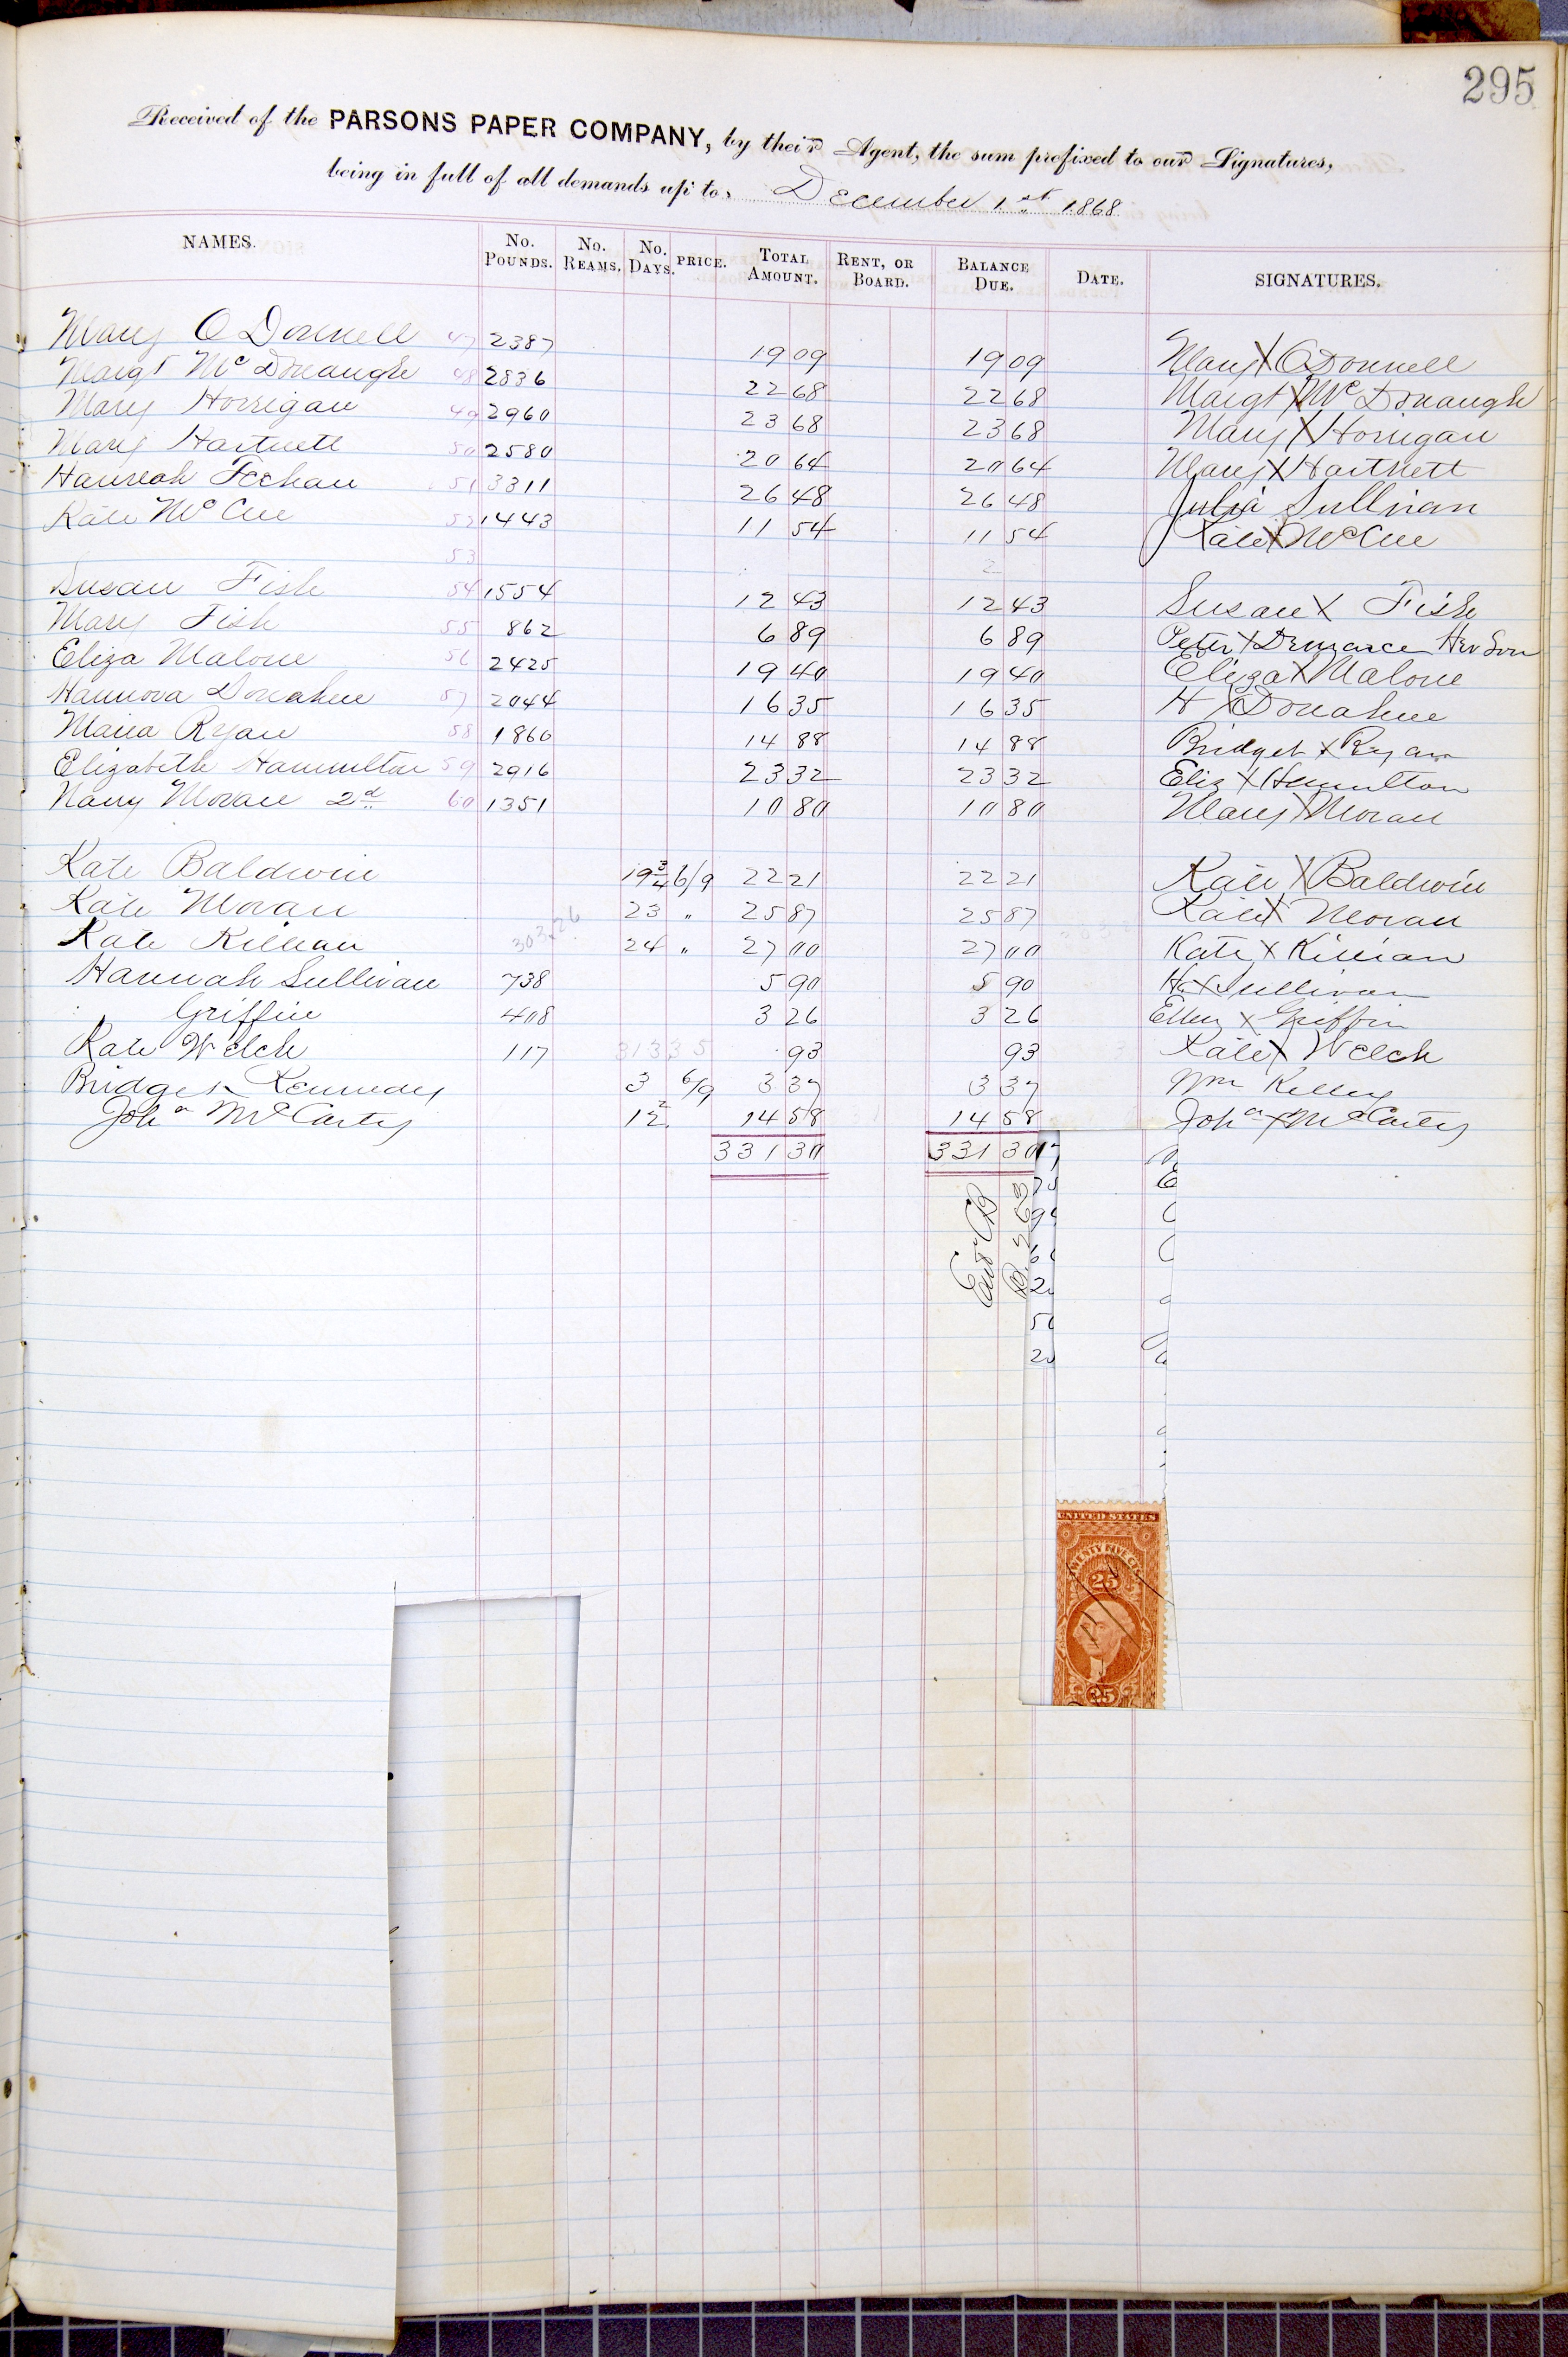 295
Received of the PARSONS PAPER COMPANY, by their Agent, the sum prefixed to our Signatures,
being in full of all demands up to December 1st 1868
NAMES. No. POUNDS. No. REAMS. No. DAYS. PRICE. TOTAL AMOUNT. RENT, OR BOARD. BALANCE DUE. DATE. SIGNATURES.
Mary O Donnell 47 2387 19 09 19 09 Mary X O Donnell
Margt McDonaugh 48 2836 22 68 22 68 Margt X McDonaugh
Mary Horrigan 49 2960 23 68 23 68 Mary X Horrigan
Mary Hartnett 50 2580 20 64 20 64 Mary X Hartnett
Hannah Feehan 51 3311 26 48 26 48 Julia Sullivan
Kate McCue 52 1443 11 54 11 54 Kate X McCue
53
Susan Fish 54 1554 12 43 12 43 Susan X Fish
Mary Fish 55 862 6 89 6 89 Peter X Her Son
Eliza Malone 56 2425 19 40 19 40 Eliza X Malone
Hannora Donahue 57 2044 16 35 16 35 H X Donahue
Maria Ryan 58 1860 14 88 14 88 Bridget X Ryan
Elizabeth Hammilton 59 2916 23 32 23 32 Eliz X Hamilton
Nancy Moran 2d 60 1351 10 80 10 80 Mary X Moran
Kate Baldwin 19 3/4 6/9 22 21 22 21 Kate X Baldwin
Kate Moran 23 " 25 87 25 87 Kate X Moran
Kate Killian 24 " 27 00 27 00 Kate X Killian
Hannah Sullivan 738 5 90 5 90 H X Sullivan
Griffin 408 3 26 3 26 Ellen X Griffin
Kate Welch 117 93 93 Kate X Welch
Bridget Kennedy 3 6/9 3 37 3 37 Wm Kelley
Joha McCarty 12 14 58 14 58 Joha X McCarty
331 30 331 30
Ent CB
P. 263
UNITED STATES
TWENTY FIVE CTS.
25
25